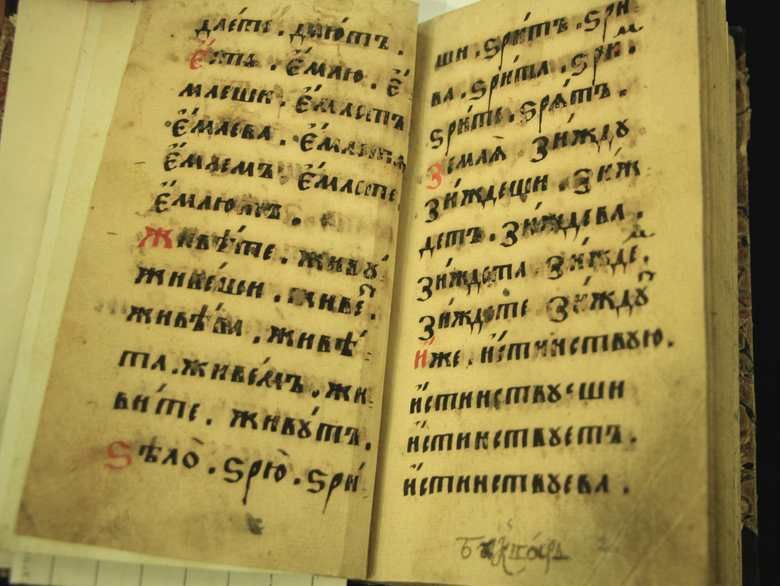 длѐте . дѣю́тъ .
Е҆́сть . є҆́млю . є҆́
млеши . є҆́млетъ
є҆́млева . є҆́млета
є҆́млемъ . є҆́млете
є҆́млютъ .
Живѣ́те . живу̀
живе́ши . живе́т .
живѣ́ва . живѣ́
та . живе́мъ . жи
ви́те . живу́тъ .
Ѕѣлѡ̀ . ѕрю̀ . ѕри́
ши . ѕри́тъ . ѕри́
ва . ѕри́та . ѕри́м .
ѕри́те . ѕрѧ́тъ .
Землѧ̀ зи́ждꙋ
зи́ждеши . зи́ж
детъ . зи́ждева .
зи́ждета . зи́ждем .
зи́ждете зи́ждꙋт
И҆́же . и҆́стинствꙋю .
и҆́стинствꙋеши
и҆́стинствꙋетъ .
и҆́стинствꙋева .